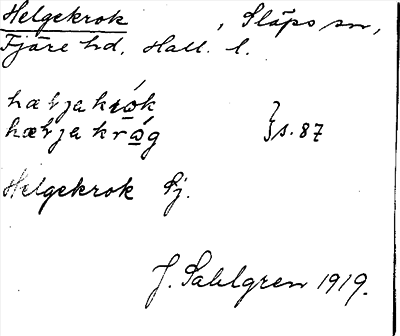 Helgekrok , Släps sn,
Fjäre hd. Hall. l.
hæljakrók
hæljakróg } s. 87
Helgekrok Gj.
J. Sahlgren 1919.